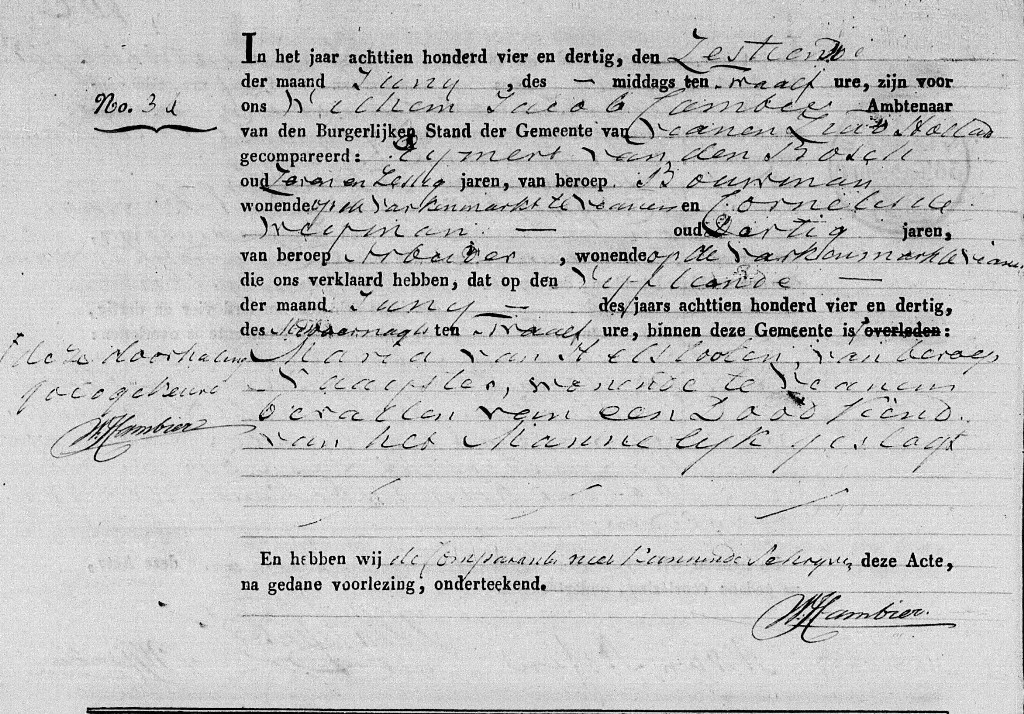 In het jaar achttien honderd vier en dertig, den Zestiende
der maand Juny , des — middags ten twaalf ure, zijn voor
No. 32
ons Willhem Jacob Cambier Ambtenaar
van den Burgerlijken Stand der Gemeente van Vianen Zuid Holland
gecompareerd: Rymert van den Bosch
oud Zeven en Zestig jaren, van beroep Bouwman
wonende op de Varkenmarkt te Vianen en Cornelis de
Weyman — oud Dertig jaren,
van beroep Arbeider , wonende op de Varkenmarkt te Vianen
die ons verklaard hebben, dat op den Vyftiende —
der maand Juny — des jaars achttien honderd vier en dertig,
des voornagts ten twaalf ure, binnen deze Gemeente is overleden:
deze doorhaling
goedgekeurd
WJCambier
Maria van Helsloten, van beroep
, wonende te Vianen
bevallen van een Dood Kind
van het Mannelyk geslagt
En hebben wij de Comparanten niet kunnende Schryven deze Acte,
na gedane voorlezing, onderteekend.
WJCambier.